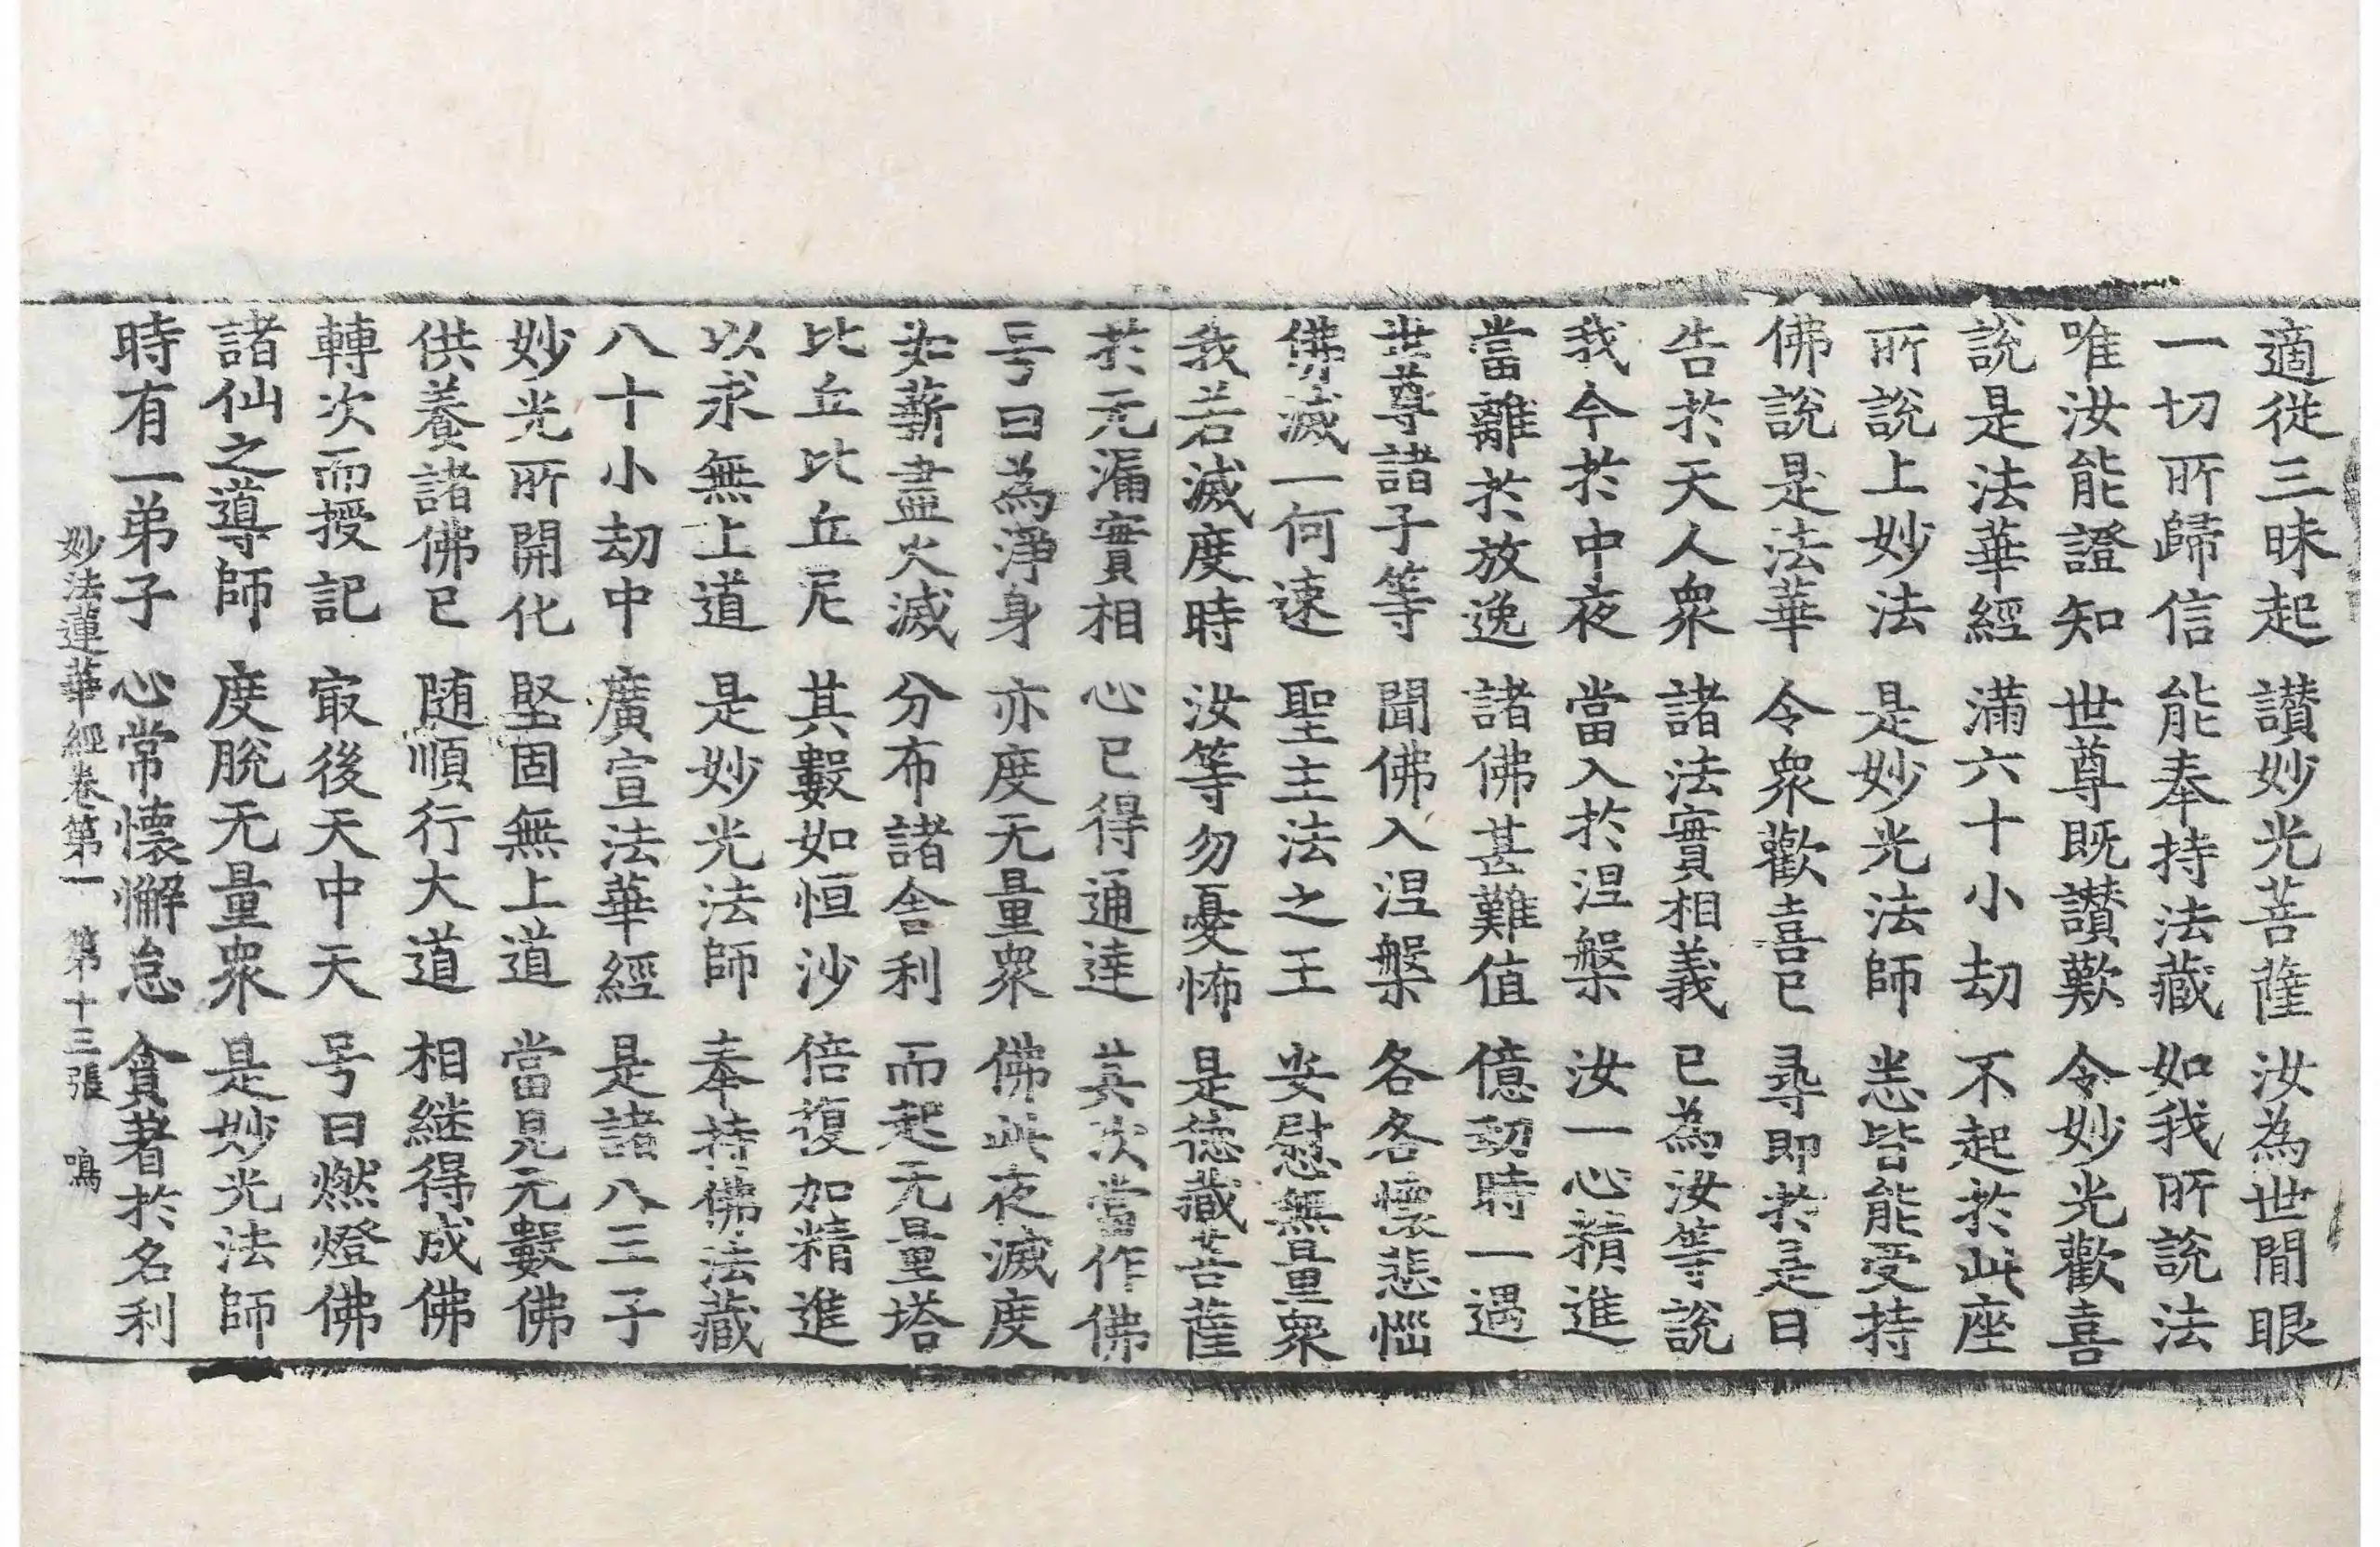 適從三昧起 讃妙光菩薩 汝為世間眼
一切所歸信 能奉持法藏 如我所說法
唯汝能證知 世尊既讃歎 令妙光歡喜
說是法華經 滿六十小劫 不起於此座
所說上妙法 是妙光法師 悉皆能受持
佛說是法華 令衆歡喜已 尋即於是日
告於天人衆 諸法實相義 已為汝等說
我今於中夜 當入於涅槃 汝一心精進
當離於放逸 諸佛甚難值 億劫時一遇
世尊諸子等 聞佛入涅槃 各各懷悲惱
佛滅一何速 聖主法之王 安慰無量衆
我若滅度時 汝等勿憂怖 是德藏菩薩
於无漏實相 心已得通達 其次當作佛
号曰為淨身 亦度无量衆 佛此夜滅度
如薪盡火滅 分布諸舍利 而起无量塔
比丘比丘尼 其數如恒沙 倍復加精進
以求無上道 是妙光法師 奉持佛法藏
八十小劫中 廣宣法華經 是諸八王子
妙光所開化 堅固無上道 當見无數佛
供養諸佛已 随順行大道 相継得成佛
轉次而授記 㝡後天中天 号曰燃燈佛
諸仙之導師 度脫无量衆 是妙光法師
時有一弟子 心常懷懈怠 貪著於名利
妙法蓮華經卷第一 第十三張 鳴